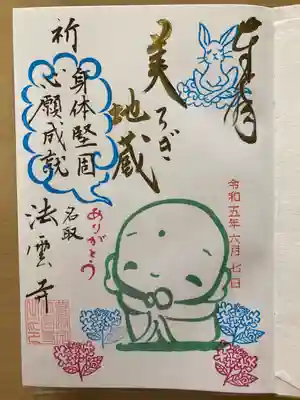 奉拝
美ろぎ
地蔵
祈
身体堅固
心願成就
ありがとう
名取
法雲寺
令和五年六月七日